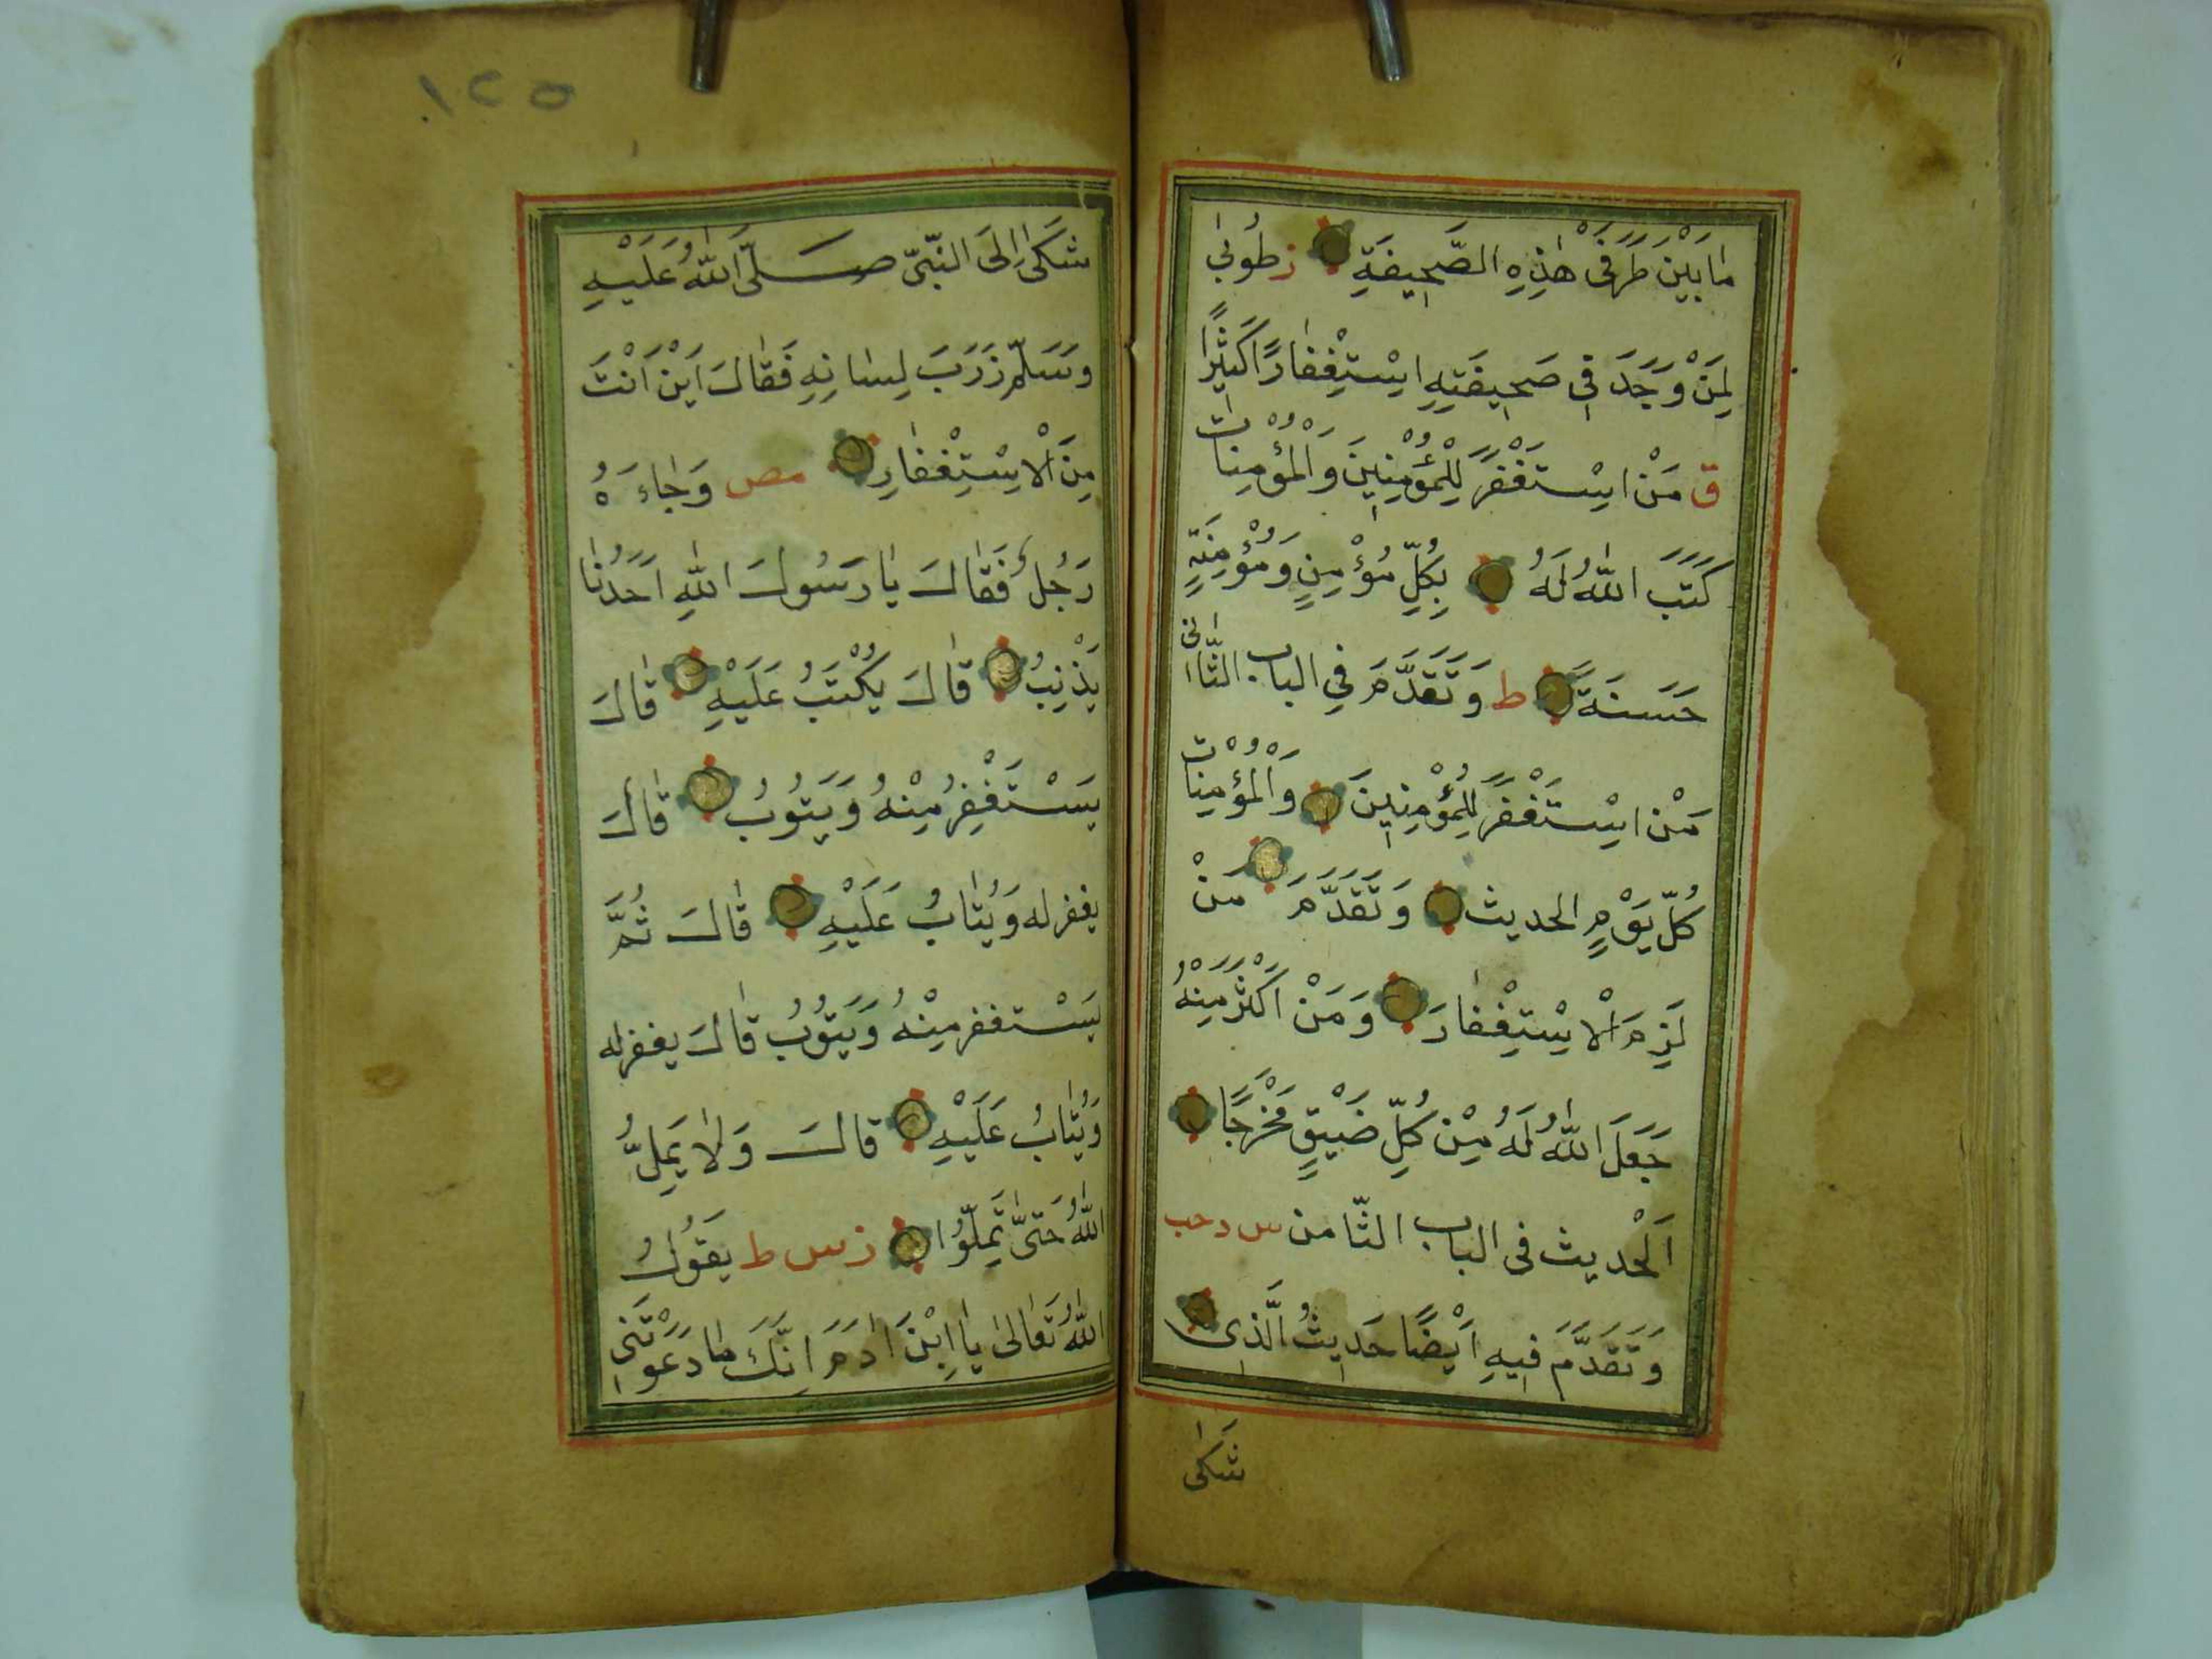 مَا بَيْنَ طَرَفَيْ هٰذِهِ الصَّحِيفَةِ ز طُوبٰى
لِمَنْ وَجَدَ فِي صَحِيفَتِهِ اِسْتِغْفَارًا كَثِيرًا
ق مَنْ اِسْتَغْفَرَ لِلْمُؤْمِنِينَ وَالْمُؤْمِنَات
كَتَبَ اللّٰهُ لَهُ بِكُلِّ مُؤْمِنٍ وَمُؤْمِنَةٍ
حَسَنَةً ط وَتَقَدَّمَ فِي الباب الثَّاني
مَنْ اِسْتَغْفَرَ لِلْمُؤْمِنِينَ وَالْمُؤْمِنَات
كُلَّ يَوْمٍ الحديث وَتَقَدَّمَ مَنْ
لَزِمَ الْاِسْتِغْفَارَ وَمَنْ اَكْثَرَ مِنْهُ
جَعَلَ اللّٰهُ لَهُ مِنْ كُلِّ ضَيْقٍ مَخْرَجًا
اَلْحَديث فى الباب الثّامن س د حب
وَتَقَدَّمَ فِيهِ اَيْضًا حَدِيثُ الَّذِى
شَكٰى
١٢٥
شَكٰى اِلَى النَّبِيّ صَلَّى اللّٰهُ عَلَيْهِ
وَسَلَّمَ ذَرَبَ لِسَانِهِ فَقَالَ اَيْنَ اَنْتَ
مِنَ الْاِسْتِغْفَارِ مص وَجَاءَهُ
رَجُلٌ فَقَالَ يَا رَسُولَ اللّٰهِ اَحَدُنَا
يَذْنِبُ قَالَ يُكْتَبُ عَلَيْهِ قَالَ
يَسْتَغْفِرُ مِنْهُ وَيَتُوبُ قَالَ
يغفر له وَيُتَابُ عَلَيْهِ قَالَ ثُمَّ
يَسْتغفر مِنْهُ وَيَتُوبُ قَالَ يغفر له
وَيُتَابُ عَلَيْهِ قالَ وَلَا يَمِلُّ
اللّٰهُ حَتّٰى تَمِلُّوا ز س ط يَقُولُ
اللّٰهُ تَعَالٰى يَا اِبْنَ اٰدَمَ اِنَّكَ مَا دَعَوْتَنِى